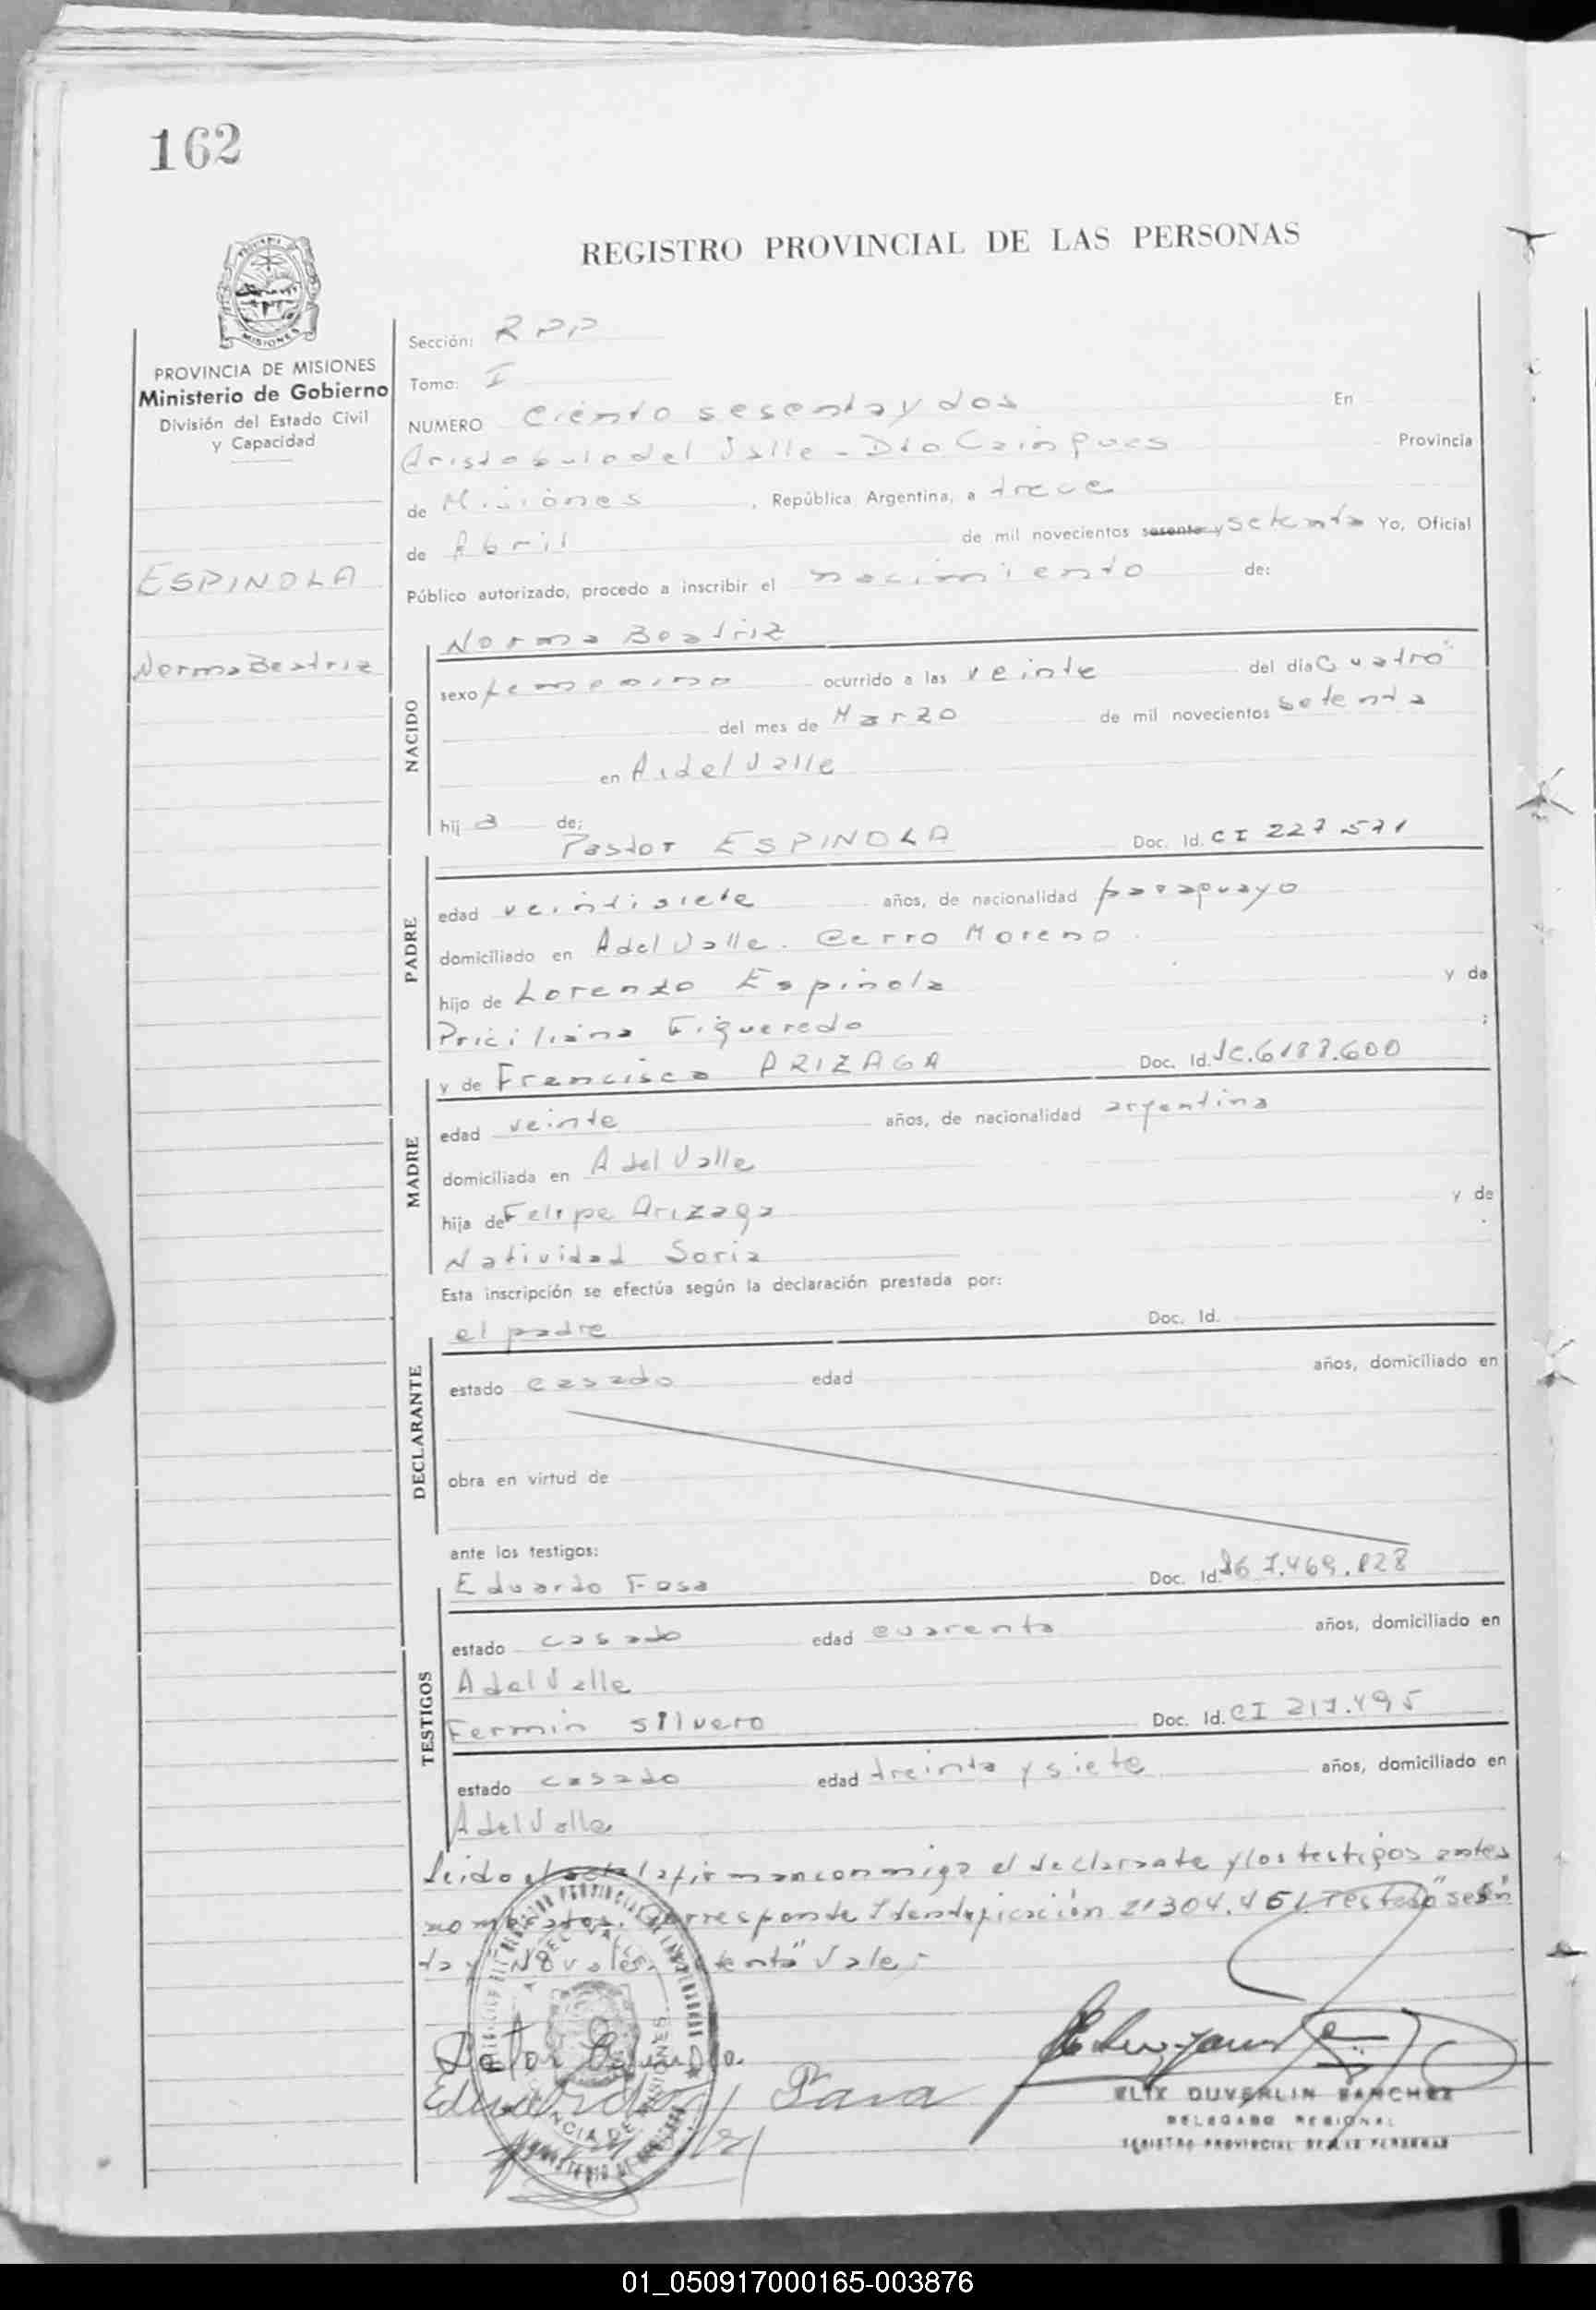 162
REGISTRO PROVINCIAL DE LAS PERSONAS
MISIONES
PROVINCIA DE MISIONES
Ministerio de Gobierno
División del Estado Civil
y Capacidad
ESPINOLA
Norma Beatriz
Sección: RPP
Tomo: I
NUMERO Ciento sesenta y dos En
Aristobulo del Valle - Dto Cainguas Provincia
de Misiones, República Argentina, a trece
de Abril de mil novecientos sesenta y setenta Yo, Oficial
Público autorizado, procedo a inscribir el nacimiento de:
NACIDO
Norma Beatriz
sexo femenino ocurrido a las veinte del día Cuatro
del mes de Marzo de mil novecientos setenta
en A. del Valle
hij a de:
PADRE
Pastor ESPINOLA Doc. Id. CI 227.571
edad veintisiete años, de nacionalidad paraguayo
domiciliado en A del Valle. Cerro Moreno
hijo de Lorenzo Espinola y de
Priciliana Figueredo ;
MADRE
y de Francisca ARIZAGA Doc. Id. LC. 6188.600
edad veinte años, de nacionalidad argentina
domiciliada en A del Valle
hija de Felipe Arizaga y de
Natividad Soria
Esta inscripción se efectúa según la declaración prestada por:
DECLARANTE
el padre Doc. Id.
estado casado edad años, domiciliado en
obra en virtud de
ante los testigos:
TESTIGOS
Eduardo Fosa Doc. Id. 7.469.828
estado casado edad cuarenta años, domiciliado en
A del Valle
Fermin Silvero Doc. Id. CI 217.495
estado casado edad treinta y siete años, domiciliado en
A del Valle
Leido el acta la firman conmigo el declarante y los testigos antes
nombrados. Corresponde Identificación 21304.451. Testado "sesen
ta y" No vale. "setenta" Vale.-
ELIX DUVERLIN SANCHEZ
DELEGADO REGIONAL
REGISTRO PROVINCIAL DE LAS PERSONAS
01_050917000165-003876